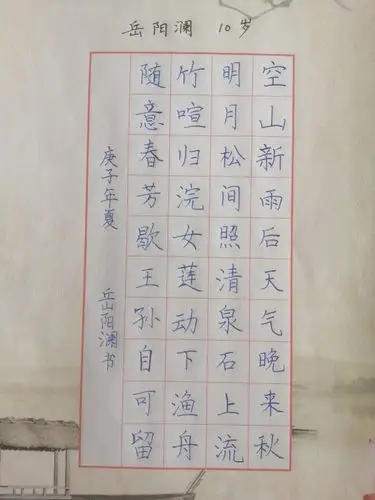 岳阳澜 10岁
空山新雨后天气晚来秋
明月松间照清泉石上流
竹喧归浣女莲动下渔舟
随意春芳歇王孙自可留
庚子年夏 岳阳澜书